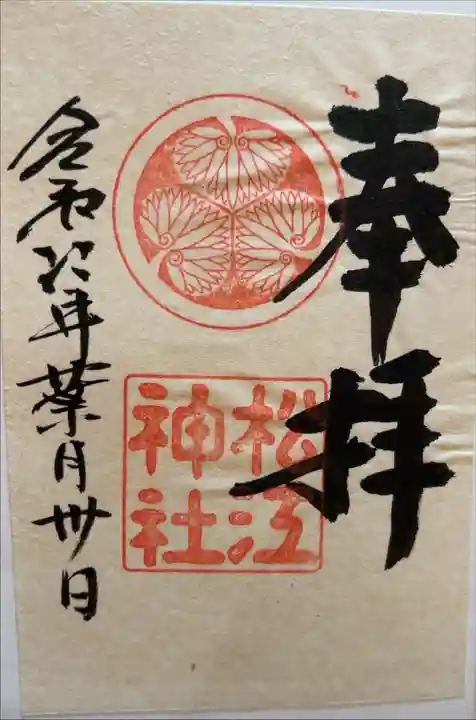 奉拝
松江
神社
令和年葉月卅日